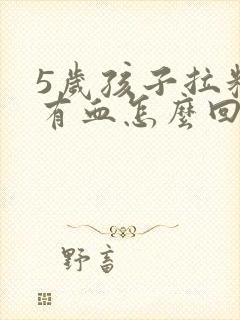 5歲孩子拉
有血怎麼回
野畜